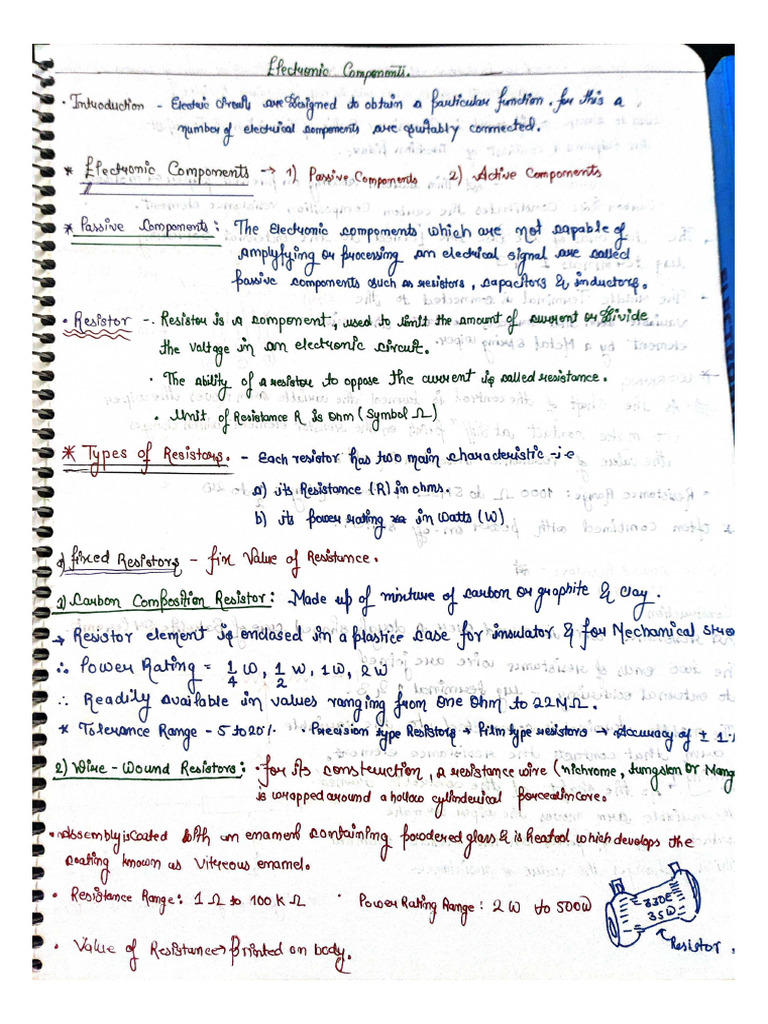 Electronic Components.
· Introduction - Electric circuits are designed to obtain a particular function. for this a
number of electrical components are suitably connected.
* Electronic Components → 1) Passive Components 2) Active Components
* Passive Components: The Electronic components which are not capable of
amplyfying or processing an electrical signal are called
passive components such as resistors, capacitors & inductors.
· Resistor - · Resistor is a component, used to limit the amount of current or divide
the voltage in an electronic circuit.
· The ability of a resistor to oppose the current is called resistance.
· Unit of Resistance R is ohm (Symbol Ω)
* Types of Resistors. - Each resistor has two main characteristic -i.e
a) its Resistance (R) in ohms.
b) its power rating in watts (W)
1) fixed Resistors - fix Value of Resistance.
1) Carbon Composition Resistor: Made up of mixture of carbon or graphite & clay.
→ Resistor element is enclosed in a plastice case for insulator & for Mechanical stre
∴ Power Rating = 1/4 W, 1/2 W, 1W, 2W
∴ Readily available in values ranging from one ohm to 22MΩ.
* Tolerance Range - 5 to 20% · Precision type Resistors → Film type resistors → Accuracy of ± 1%
2) Wire - Wound Resistors: · for its construction, a resistance wire (nichrome, tungston or Mang
is wrapped around a hollow cylinderical porcealin core.
· Assembly is coated with an enamel containing powdered glass & is heated which develops the
coating known as Vitreous enamel.
· Resistance Range: 1 Ω to 100 K Ω · Power Rating Range: 2 W to 500W
330E
35W
Resistor
· Value of Resistance → Printed on body.